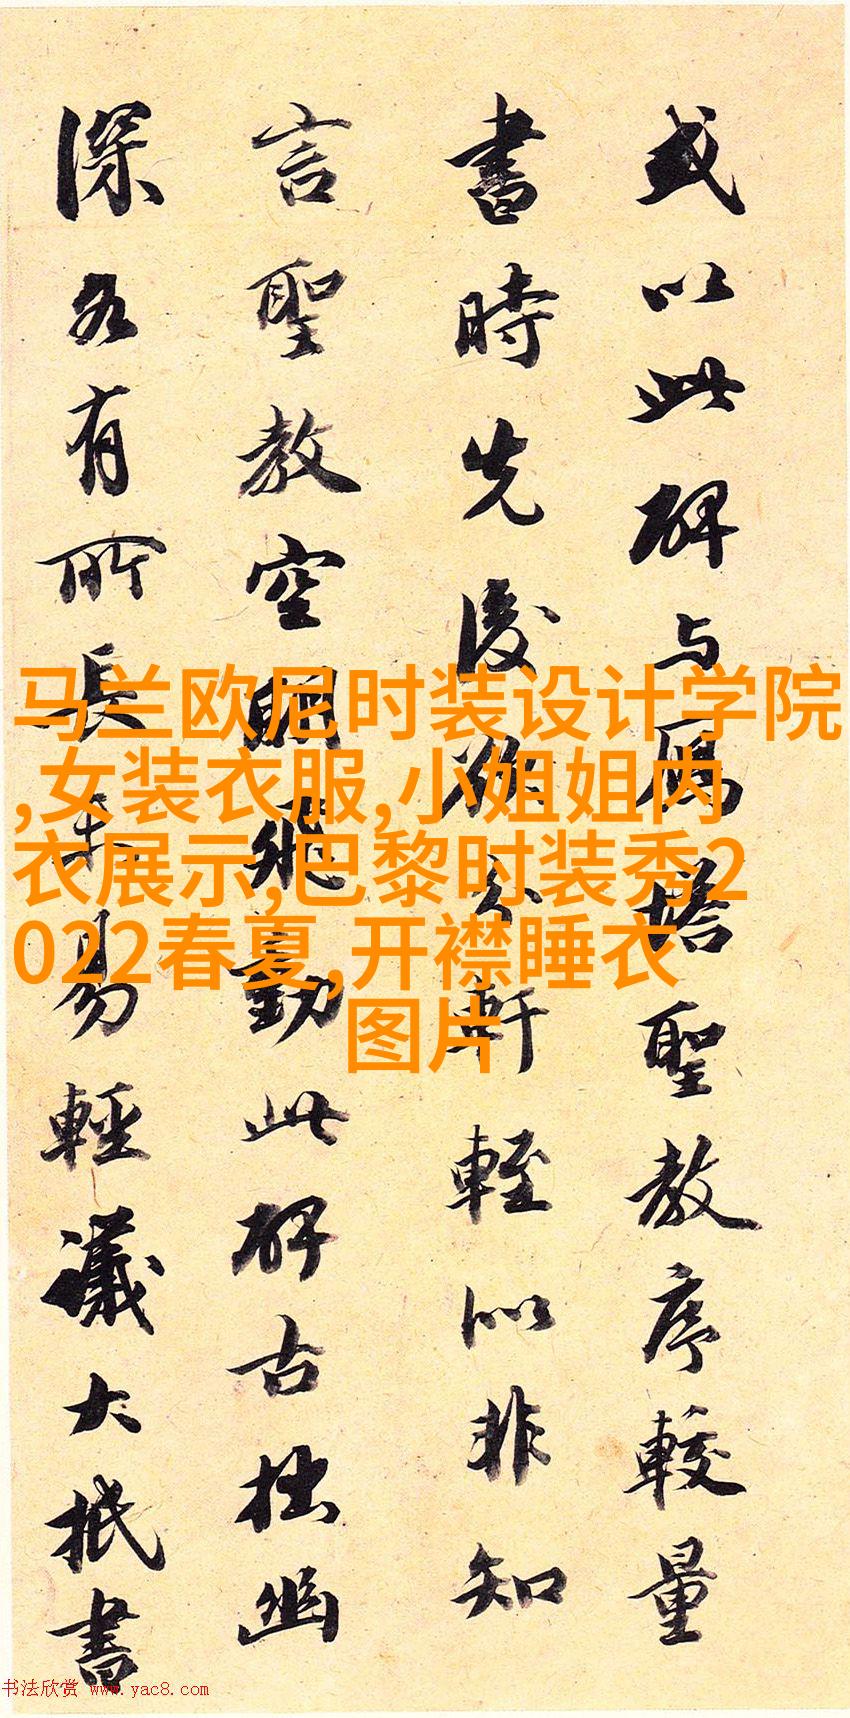 或以此碑与鴈塔聖教序較量
書時先後欲分軒輊似非知
言聖教空明飛動此碑古拙幽
深各有所長未易輕議大抵書
马兰欧尼时装设计学院
,女装衣服,小姐姐内
衣展示,巴黎时装秀2
022春夏,开襟睡衣
图片
书法欣赏 www.yac8.com